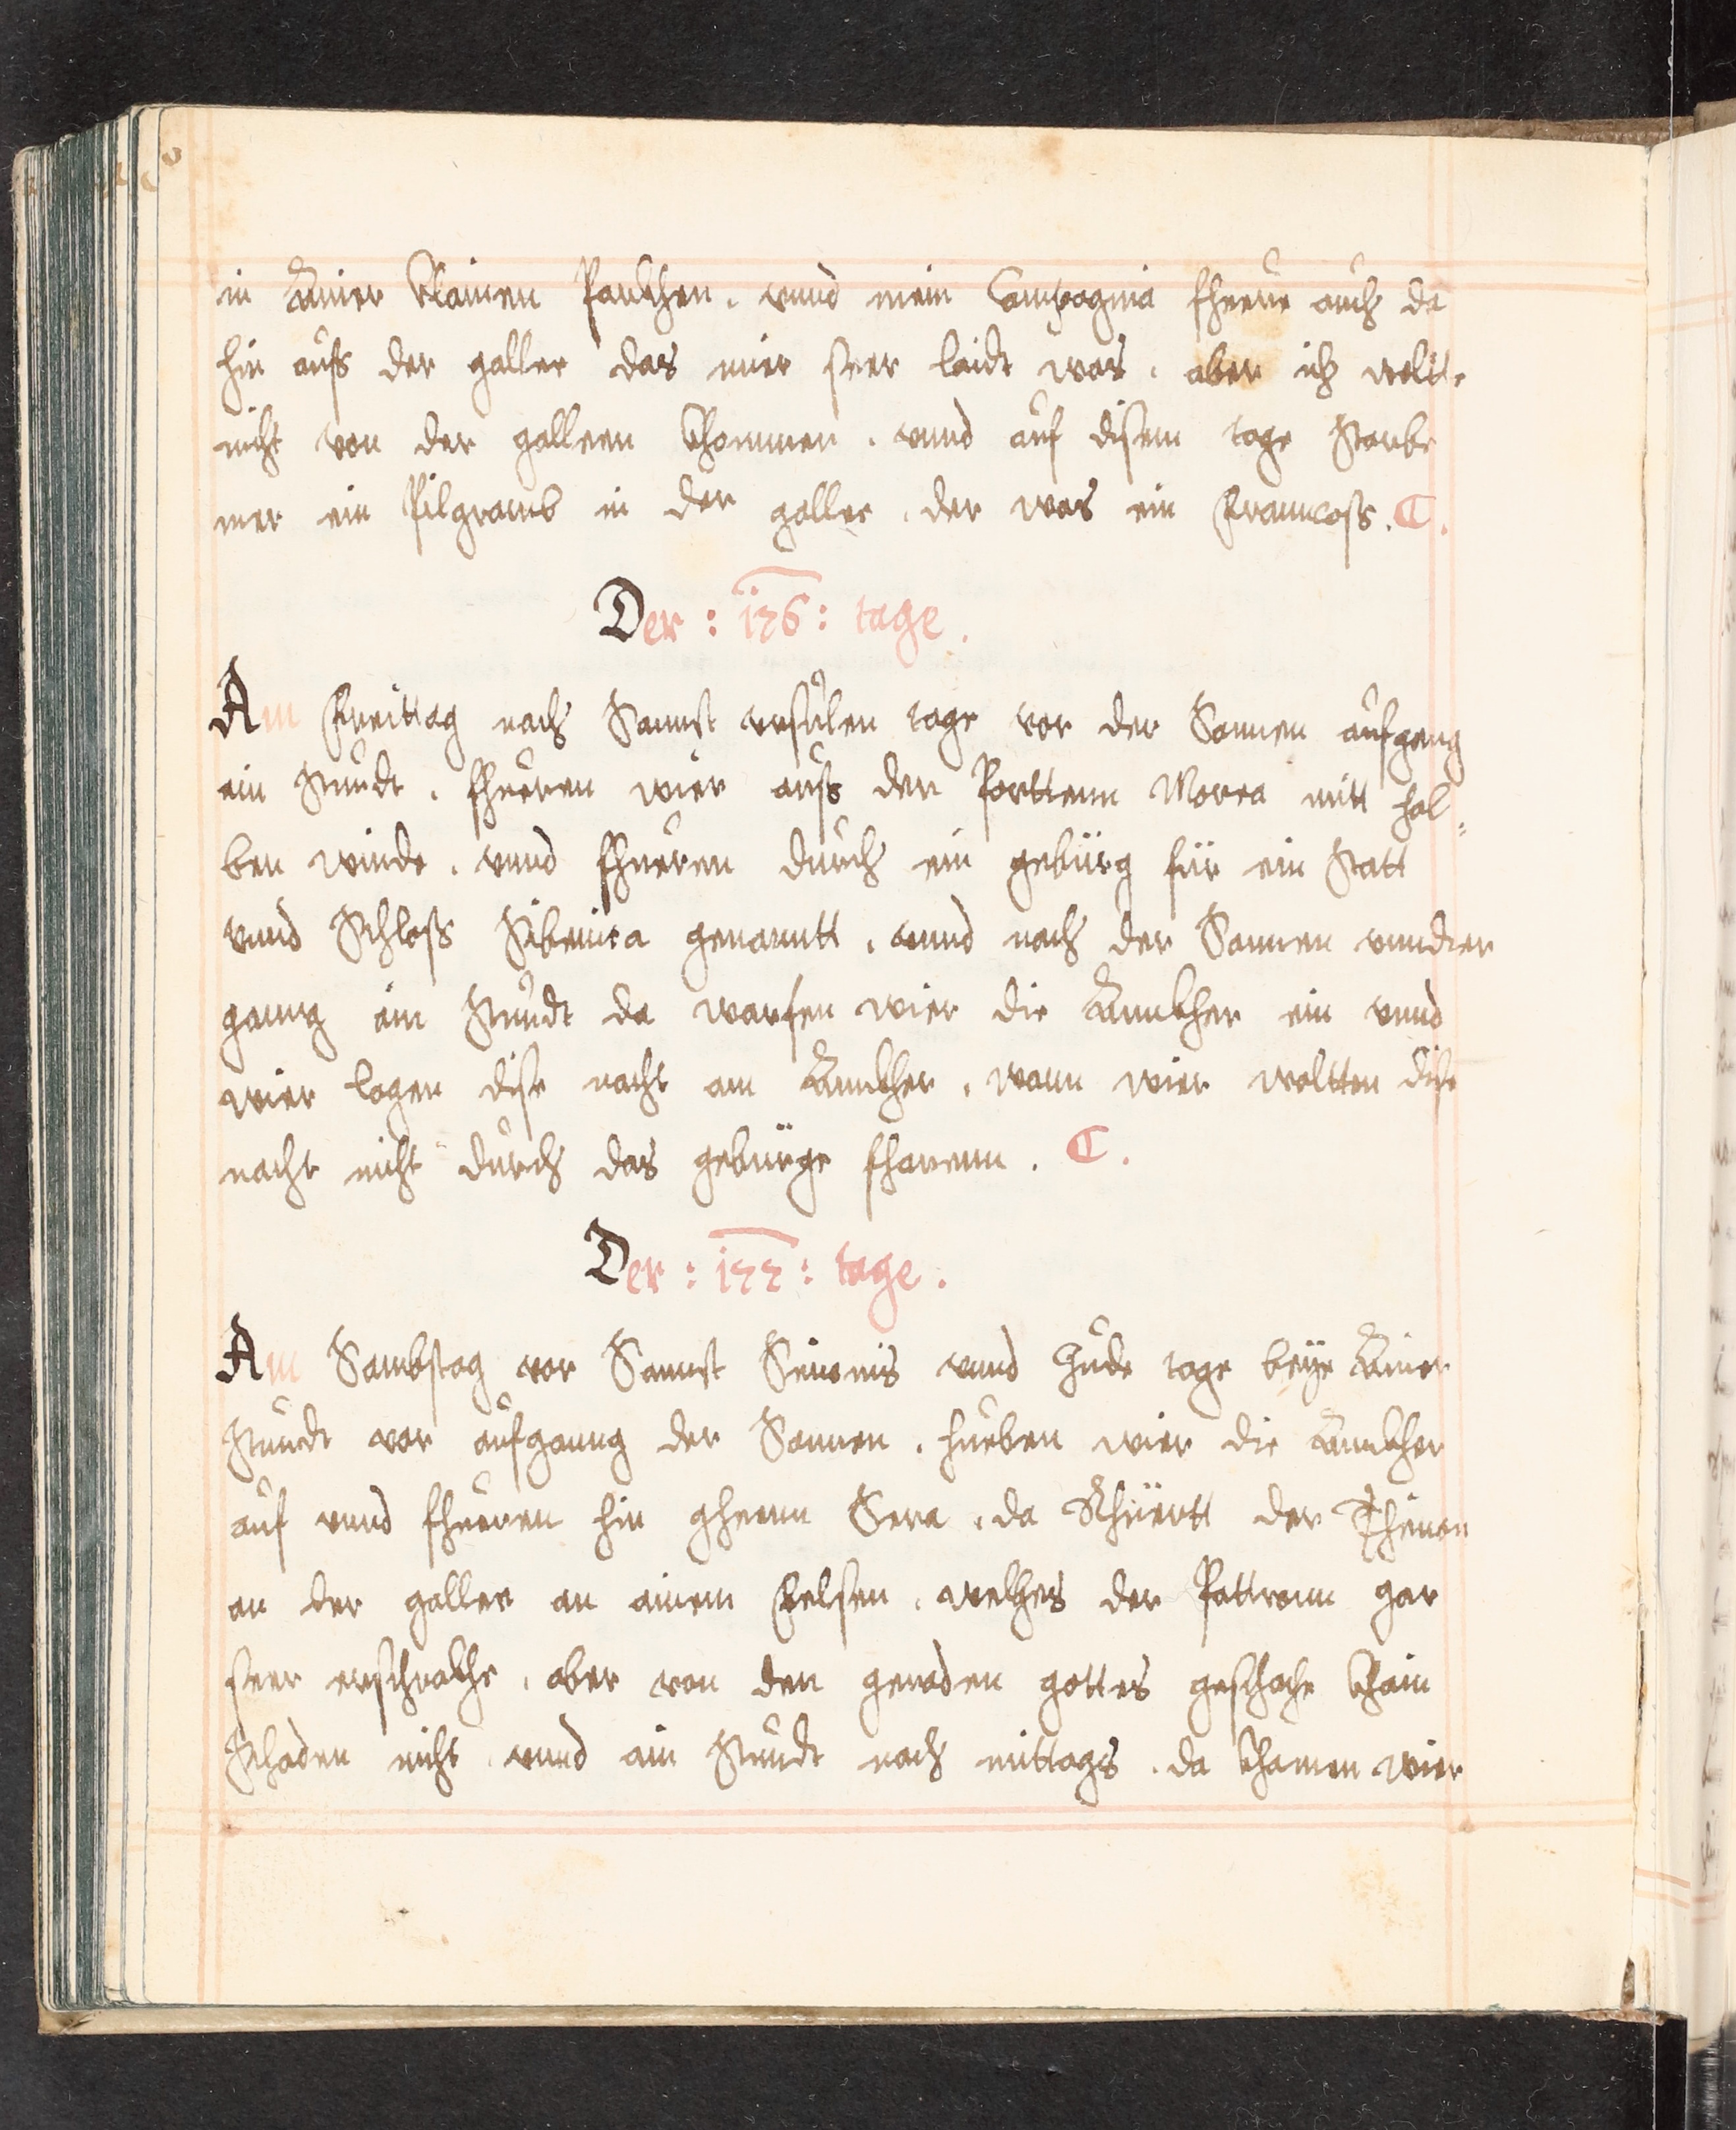 in Ainer Klainen Parkhen . vnnd mein Compagnia fhuere auch da
hin auss der gallee das mier seer laidt was . aber ich wolte
nicht von der galleen khommen . vnnd auf disem tage starbe
mer ein Pilgramb in der gallee . der was ein Franncoss . C .
Der : 176 : tage .
Am Freittag nach Sannct vrsulen tage vor der Sonnen aufgang
ein stundt . fhueren wier auss der Porttenn Morea mitt hal¸
ben winde . vnnd fhueren durch ein gebürg für ein Statt
vnnd Schloss Sibenica genanntt . vnnd nach der Sonnen vndter
ganng ein stundt da warfen wier die Annkher ein vnnd
wier lagen dise nacht am Annkher . wann wier woltten dise
nacht nicht durch das gebürge fharenn . C .
Der : 177 : tage .
Am Sambstag vor Sannct Simonis vnnd Jude tage beÿe Ainer
stundt vor aufganng der Sonnen . hueben wier die Annkher
auf vnnd fhueren hin gheenn Sera . da Rhüertt der
an der gallee an ainem Felsen . welches der Pattronn gar
seer erschrakhe . aber von den genaden gottes geschache khain
Schaden nicht . vnnd ain stundt nach mittags . da khamen wier